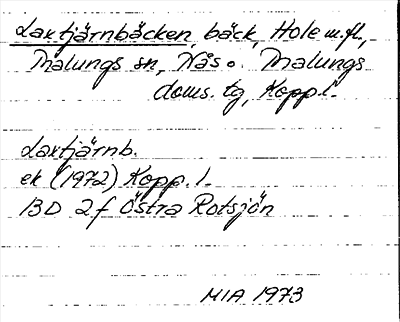 Laxtjärnbäcken, bäck, Hole m.fl.,
Malungs sn, Nås o. Malungs
doms. tg, Kopp.l.
Laxtjärnb.
ek (1972) Kopp. l.
13D 2f Östra Rotsjön
MIA 1973